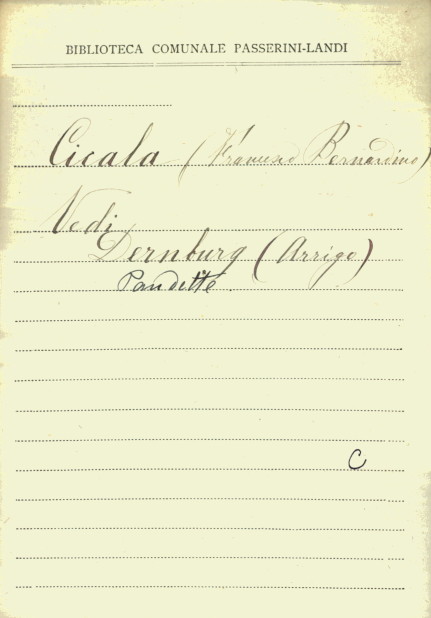 BIBLIOTECA COMUNALE PASSERINI-LANDI
Cicala (Francesco Bernardino)
Vedi
Dernburg (Arrigo)
Pandette.
C